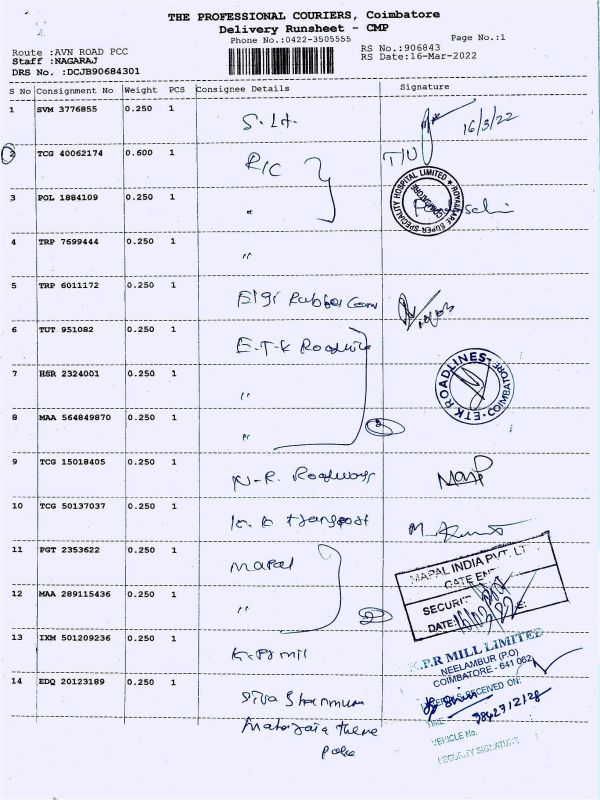 THE PROFESSIONAL COURIERS, Coimbatore
Delivery Runsheet - CMP
Phone No.:0422-3505555
Page No.:1
Route :AVN ROAD PCC
Staff :NAGARAJ
DRS No. :DCJB90684301
RS No.:906843
RS Date:16-Mar-2022
S No Consignment No Weight PCS Consignee Details Signature
1 SVM 3776855 0.250 1 16/3/22
2 TCG 40062174 0.600 1
3 POL 1884109 0.250 1 "
ROYALCARE SUPER-SPECIALITY HOSPITAL LIMITED
4 TRP 7699444 0.250 1 "
5 TRP 6011172 0.250 1 Elgi Rubber
6 TUT 951082 0.250 1 E.T.K Roadlines
7 HSR 2324001 0.250 1 "
ETK ROADLINES COIMBATORE
8 MAA 564849870 0.250 1 "
9 TCG 15018405 0.250 1 N.R. Roadways
10 TCG 50137037 0.250 1 K.K transport
11 PGT 2353622 0.250 1 Mapal
MAPAL INDIA PVT. LT
12 MAA 289115436 0.250 1 "
SECURIT
DATE: 16/03/22
13 IXM 501209236 0.250 1 K.P.R mil
K.P.R MILL LIMITED
NEELAMBUR (P.O)
COIMBATORE - 641 062
14 EDQ 20123189 0.250 1 Siva
RECEIVED ON:
TIME
VEHICLE No.
SECURITY SIGNATURE